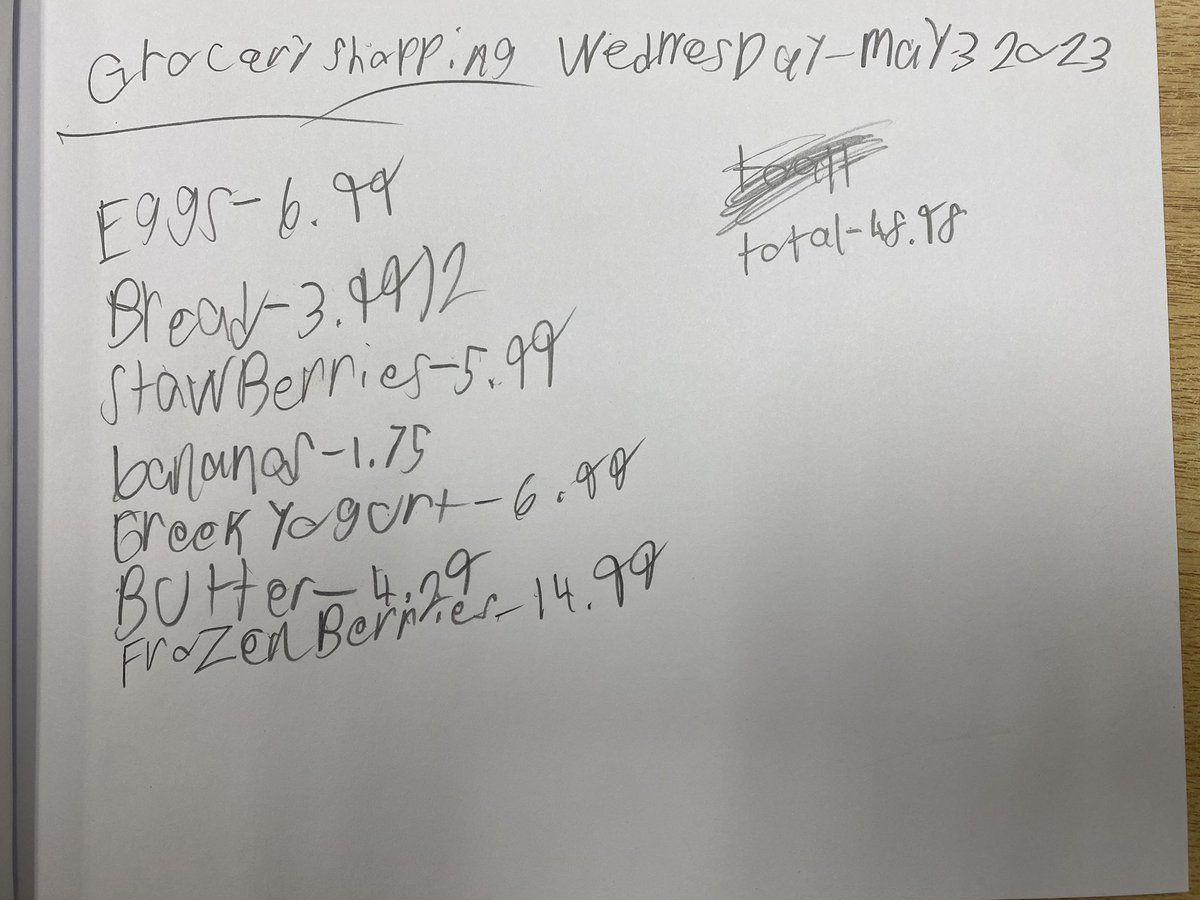 Grocery shopping Wednesday-May 3 2023
Eggs-6.99
Bread-3.99)2
StawBerries-5.99
bananas-1.75
Greek Yogurt-6.99
Butter-4.29
Frozen Berries-14.99
total-48.98